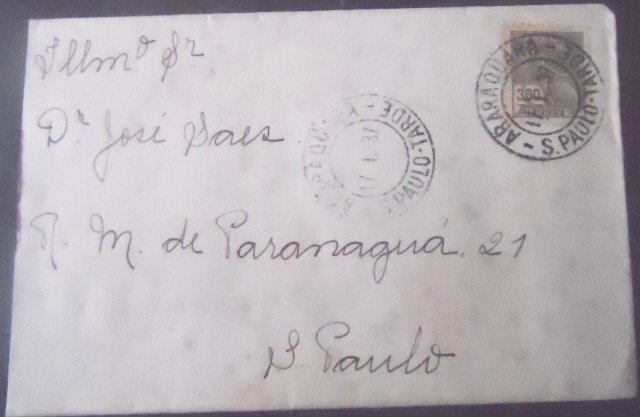 Illmº Sr
Dr José Saes
R. M. de Paranaguá, 21
S. Paulo
ARARAQUARA - S. PAULO - TARDE -
300
S. PAULO - TARDE -
17 1 37